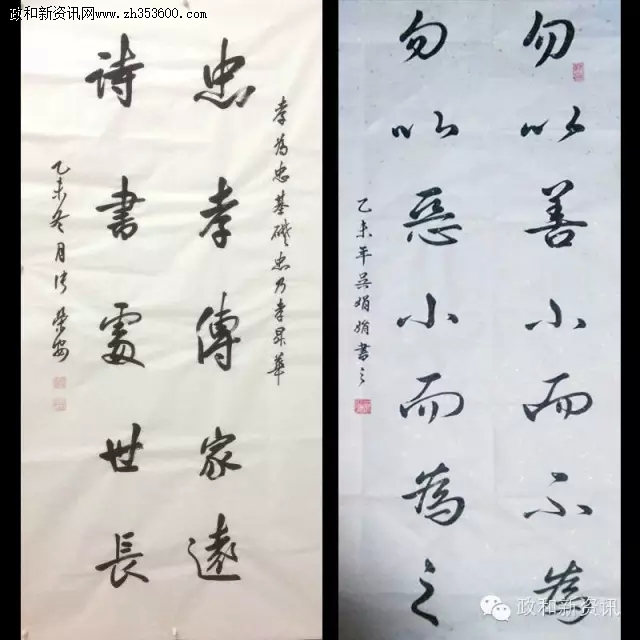 政和新资讯网
www.zh353600.com
孝為忠基礎忠乃孝昇華
忠孝傳家遠
詩書處世長
乙未冬月
勿以善小而不為
勿以惡小而為之
乙未年吴娟娟書之
政和新资讯